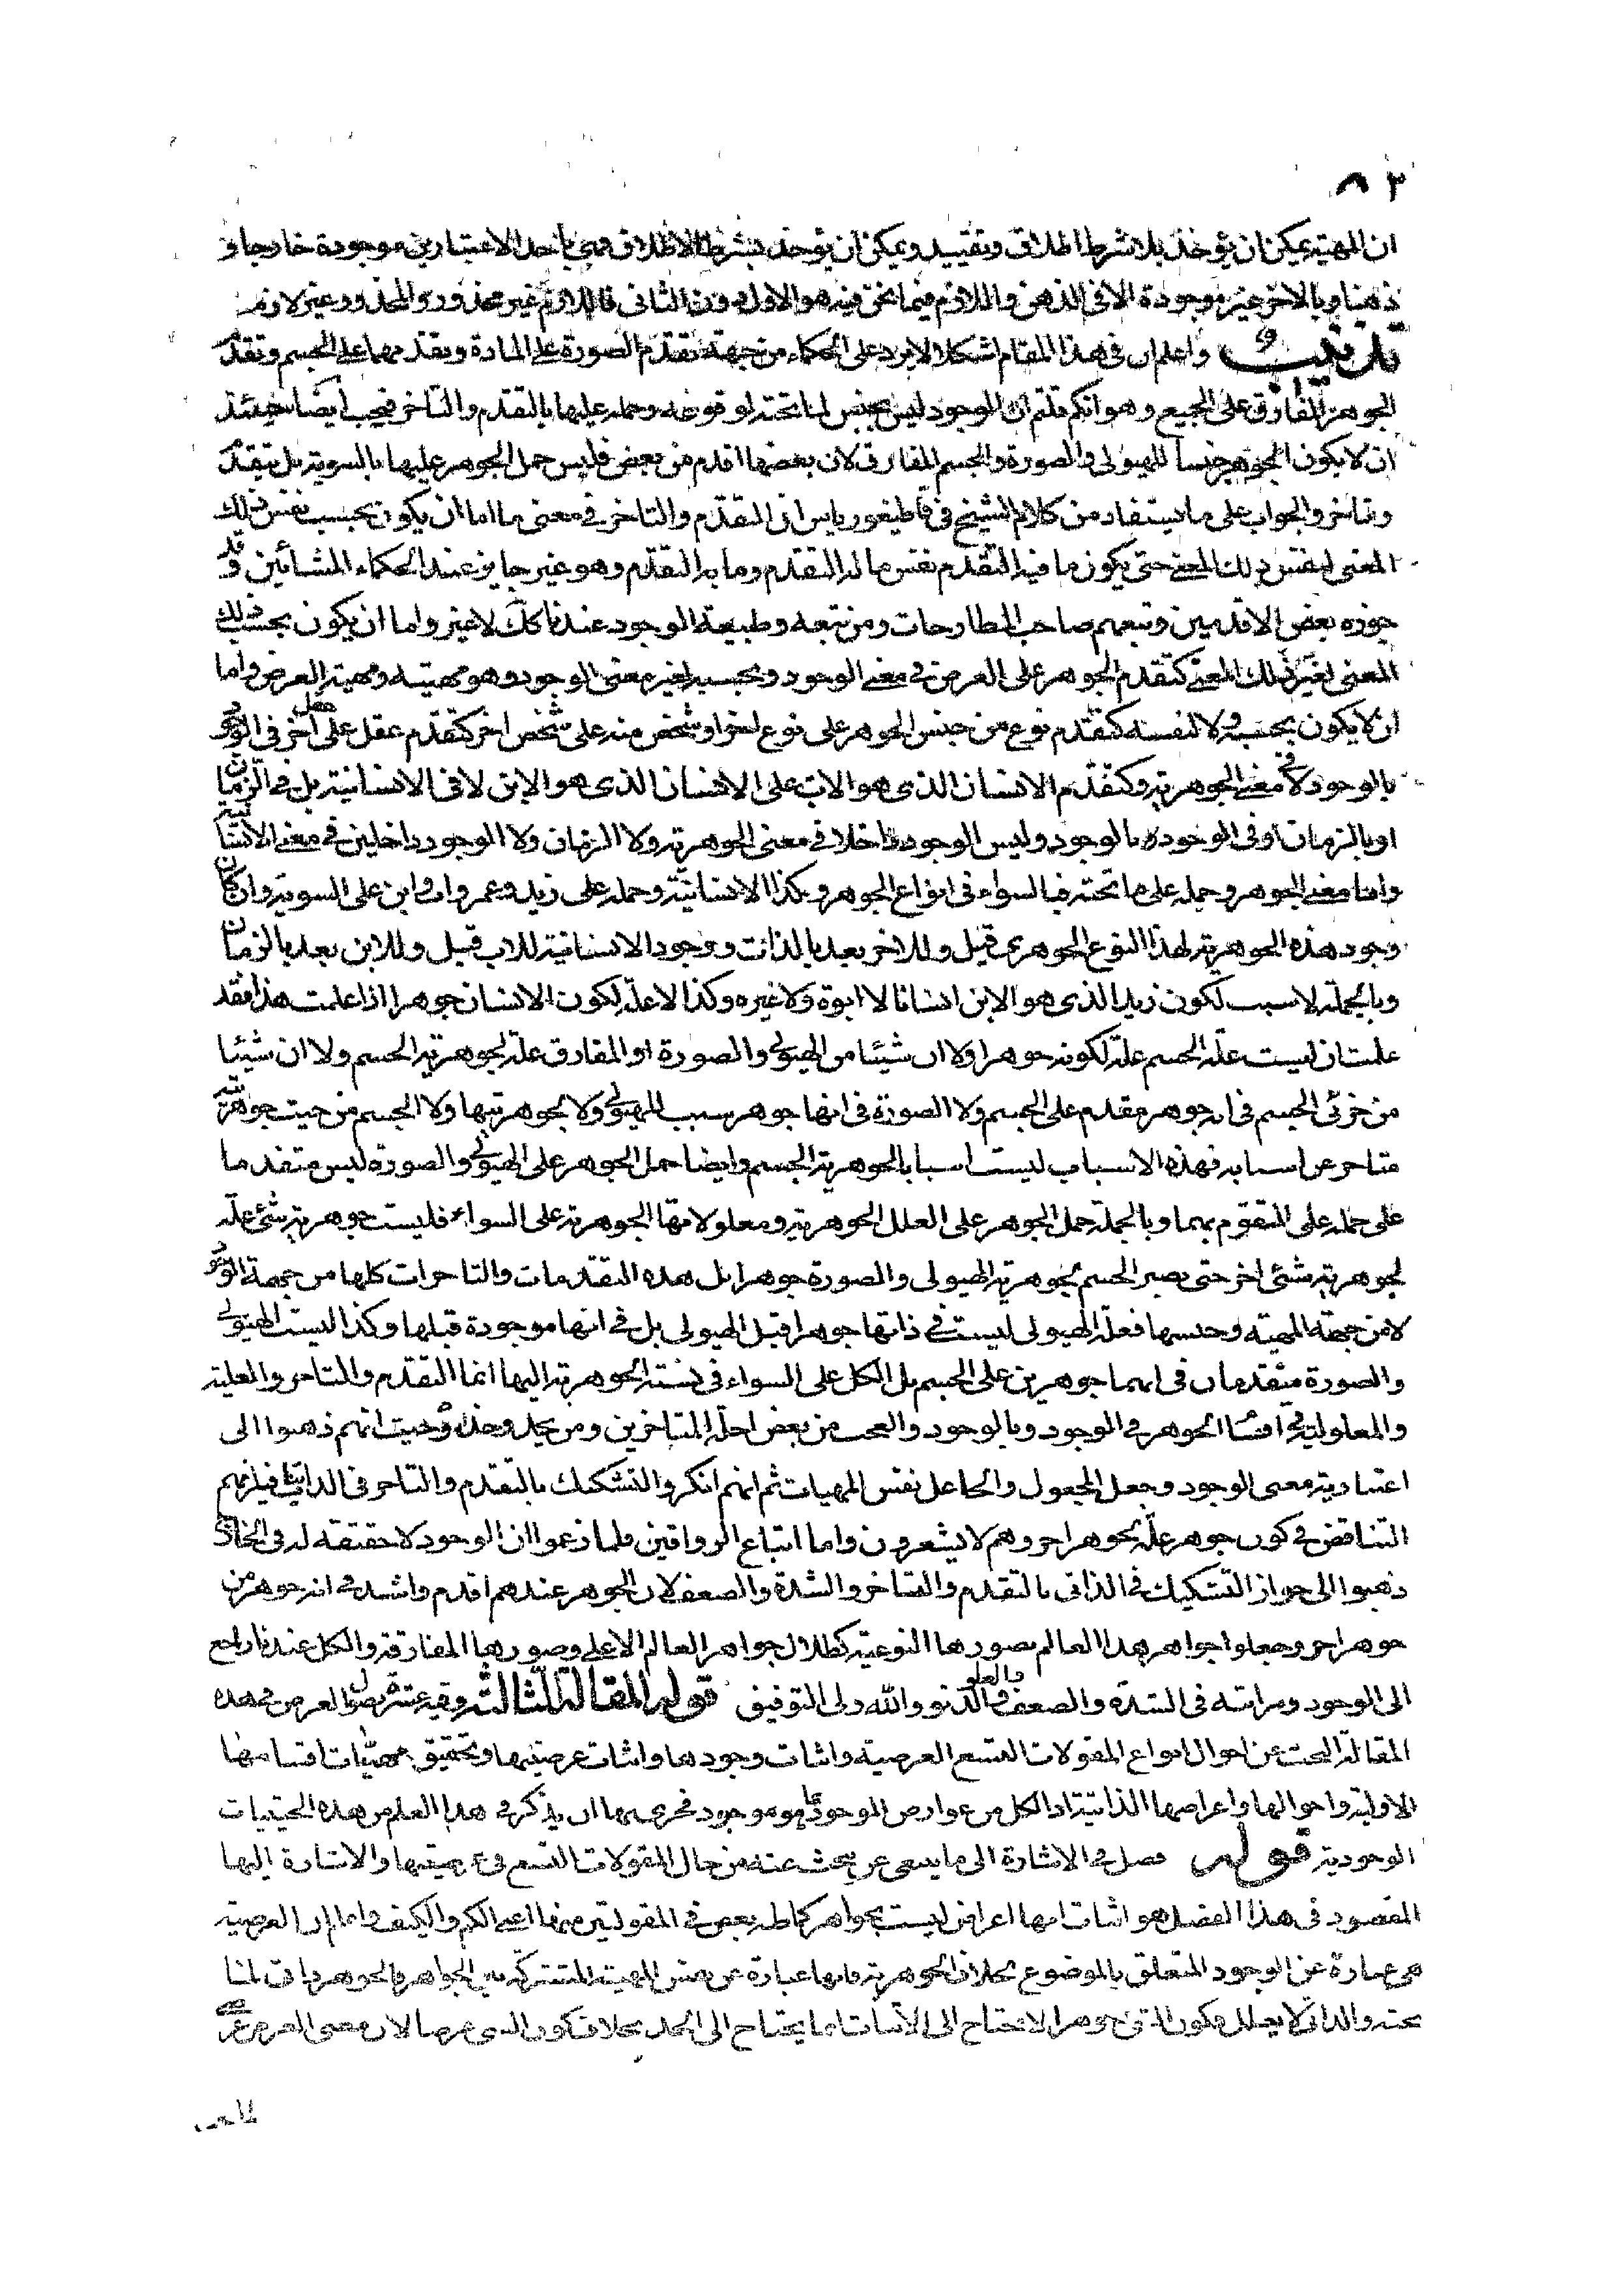 ٨٢
ان المهية يمكن ان يؤخذ بلا شرط اطلاق وتقييد ويمكن ان يؤخذ بشرط الاطلاق فهي باحد الاعتبارين موجودة خارجا و
ذهنا وبالاخر غير موجودة الا في الذهن واللازم فيما نحن فيه هو الاول دون الثاني فاللازم غير محذور والمحذور غير لازم
تذنيب واعلم ان في هذا المقام اشكالا يرد على الحكماء من جهة تقدم الصورة على المادة وتقدمهما على الجسم وتقدم
الجوهر المفارق على الجميع وهو انكم قلتم ان الوجود ليس بجنس لما تحته لوقوعه وحمله عليها بالتقدم والتاخر فيجب ايضا حينئذ
ان لا يكون الجوهر جنسا للهيولى والصورة والجسم المفارق لان بعضها اقدم من بعض فليس حمل الجوهر عليها بالسوية بل بتقدم
وتاخر والجواب على ما يستفاد من كلام الشيخ في قاطيغورياس ان التقدم والتاخر في معنى ما اما ان يكون بحسب نفس ذلك
المعنى لنفس ذلك المعنى حتى يكون ما فيه التقدم نفس ما له التقدم وما به التقدم وهو غير جايز عند الحكماء المشائين وقد
جوزه بعض الاقدمين وتبعهم صاحب المطارحات ومن تبعه وطبيعة الوجود عندنا كك لا غير واما ان يكون بحسب ذلك
المعنى لغير ذلك المعنى كتقدم الجوهر على العرض في معنى الوجود وبحسبه لغير معنى الوجود وهو مهيته ومهية العرض واما
ان لا يكون بحسبه ولا لنفسه كتقدم نوع من جنس الجوهر على نوع اخر او شخص منه على شخص اخر كتقدم عقل على عقل اخر في الوجود
بالوجود لا في معنى الجوهرية وكتقدم الانسان الذي هو الاب على الانسان الذي هو الابن لا في الانسانية بل في الزمان
او بالزمان او في الوجود بالوجود وليس الوجود داخلا في معنى الجوهرية ولا الزمان ولا الوجود داخلين في معنى الانسانية
واما معنى الجوهر وحمله على ما تحته فبالسواء في انواع الجوهر وكذا الانسانية وحمله على زيد وعمرو اب وابن على السوية وان كان
وجود هذه الجوهرية لهذا النوع الجوهري قبل وللاخر بعد بالذات ووجود الانسانية للاب قبل وللابن بعد بالزمان
وبالجملة لا سبب لكون زيد الذي هو الابن انسانا لا ابوة ولا غيره وكذا لا علة لكون الانسان جوهرا اذا علمت هذا فقد
علمت ان ليست علة الجسم علة لكونه جوهرا ولا ان شيئا من الهيولى والصورة او المفارق علة لجوهرية الجسم ولا ان شيئا
من جزئي الجسم في انه جوهر مقدم على الجسم ولا الصورة في انها جوهر سبب للهيولى ولا لجوهريتها ولا الجسم من حيث جوهريته
متاخر عن اسبابه فهذه الاسباب ليست اسبابا لجوهرية الجسم وايضا حمل الجوهر على الهيولى والصورة ليس متقدما
على حمله على المتقوم بهما وبالجملة حمل الجوهر على العلل الجوهرية ومعلولاتها الجوهرية على السواء فليست جوهرية شئ علة
لجوهرية شئ اخر حتى يصير الجسم بجوهرية الهيولى والصورة جوهرا بل هذه التقدمات والتاخرات كلها من جهة الوجود
لا من جهة المهية وجنسها فعلة الهيولى ليست في ذاتها جوهرا قبل الهيولى بل في انها موجودة قبلها وكذا ليست الهيولى
والصورة متقدمان في انهما جوهرين على الجسم بل الكل على السواء في نسبة الجوهرية اليها انما التقدم والتاخر والعلية
والمعلولية في اقسام الجوهر في الوجود وبالوجود والعجب من بعض اجلة المتاخرين ومن يحذو حذوه حيث انهم ذهبوا الى
اعتبارية معنى الوجود وجعل المجعول والجاعل نفس المهيات ثم انهم انكروا التشكيك بالتقدم والتاخر في الذاتيات فيلزمهم
التناقض في كون جوهر علة لجوهر اخر وهم لا يشعرون واما اتباع الرواقين فلما زعموا ان الوجود لا حقيقة له في الخارج
ذهبوا الى جواز التشكيك في الذاتي بالتقدم والتاخر والشدة والضعف لان الجوهر عندهم اقدم واشد في انه جوهر من
جوهر اخر وجعلوا جواهر هذا العالم بصورها النوعية كظلال جواهر العالم الاعلى وصورها المفارقة والكل عندنا راجع
الى الوجود ومراتبه في الشدة والضعف والعلو والدنو والله ولي التوفيق قوله المقالة الثالثة وفيه عشرة فصول الغرض في هذه
المقالة البحث عن احوال انواع المقولات التسع العرضية واثبات وجودها واثبات عرضيتها وتحقيق مهيات اقسامها
الاولية واحوالها واعراضها الذاتية اذ الكل من عوارض الموجود بما هو موجود فحري بها ان يذكر في هذا العلم من هذه الحيثيات
الوجودية قوله فصل في الاشارة الى ما ينبغي عن يبحث عنه من حال المقولات التسع في عرضيتها والاشارة اليها
المقصود في هذا الفصل هو اثبات انها اعراض ليست بجواهر كما ظنه بعض في المقولتين منها اعني الكم والكيف واعلم ان العرضية
هي عبارة عن الوجود المتعلق بالموضوع بخلاف الجوهرية فانها عبارة عن نفس المهية المشتركة بين الجواهر والجوهر ذاتي لما
تحته والذاتي لا يعلل فكون الشئ جوهرا لا يحتاج الى الاثبات انما يحتاج الى الحد بخلاف كون الشئ عرضا لان معنى العرض عرضي